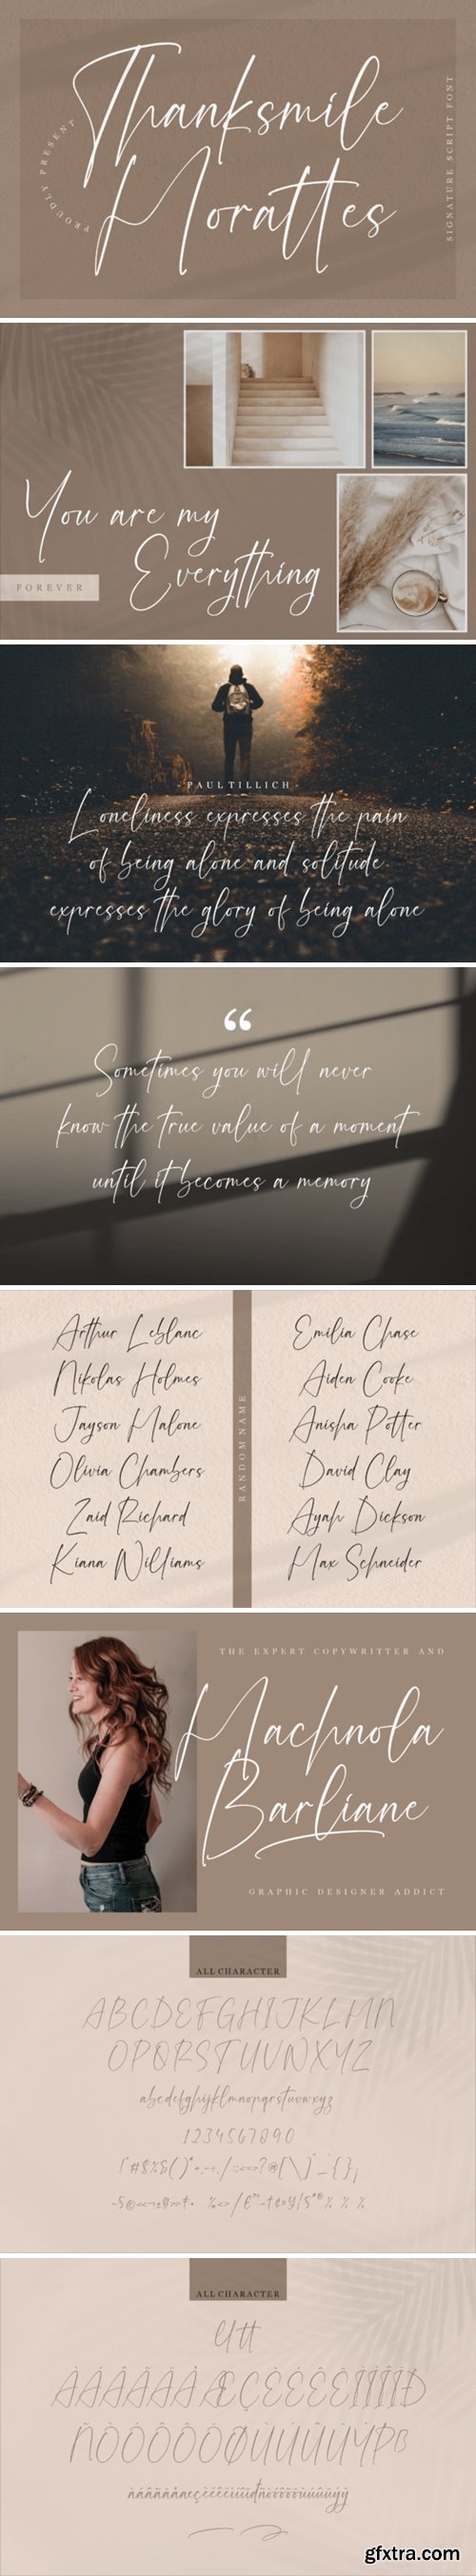 Thanksmile
Morattes
PROUDLY PRESENT
SIGNATURE SCRIPT FONT
You are my
Everything
FOREVER
- PAUL TILLICH -
Loneliness expresses the pain
of being alone and solitude
expresses the glory of being alone
“
Sometimes you will never
know the true value of a moment
until it becomes a memory
Arthur Leblanc
Nikolas Holmes
Jayson Malone
Olivia Chambers
Zaid Richard
Kiana Williams
RANDOM NAME
Emilia Chase
Aiden Cooke
Anisha Potter
David Clay
Ayah Dickson
Max Schneider
THE EXPERT COPYWRITTER AND
Machnola
Barliane
GRAPHIC DESIGNER ADDICT
ALL CHARACTER
ABCDEFGHIJKLMN
OPQRSTUVWXYZ
abcdefghijklmnopqrstuvwxyz
1234567890
ALL CHARACTER
ÀÁÂÃÄÅÆÇÈÉÊËÌÍÎÏÐ
ÑÒÓÔÕÖØÙÚÛÜÝÞß
gfxtra.com